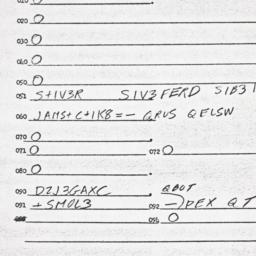 020 O
030 O
060 O
050 O
051 S+IV3R SIV3FERD SIB3I
060 JAMS+C+IK8=- GRUS QELSW
070 O
071 O 072 O
080 O
090 D2J3GAXC QBOT
091 +SMOL3 092 -)DEX QT
095 O